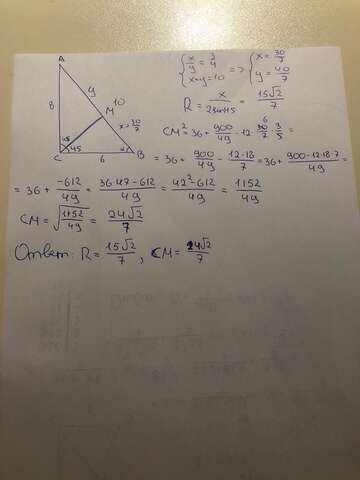 A
8
y
M
10
x = 30/7
45
45
C
6
B
{ x/y = 3/4 => { x = 30/7
x+y=10 y = 40/7
R = x/2sin45 = 15√2/7
CM² = 36 + 900/49 - 12 · 30/7 · 3/5 =
6
= 36 + 900/49 - 12·18/7 = 36 + 900-12·18·7/49 =
= 36 + -612/49 = 36·49-612/49 = 42²-612/49 = 1152/49
CM = √1152/49 = 24√2/7
Ответ: R = 15√2/7 , CM = 24√2/7